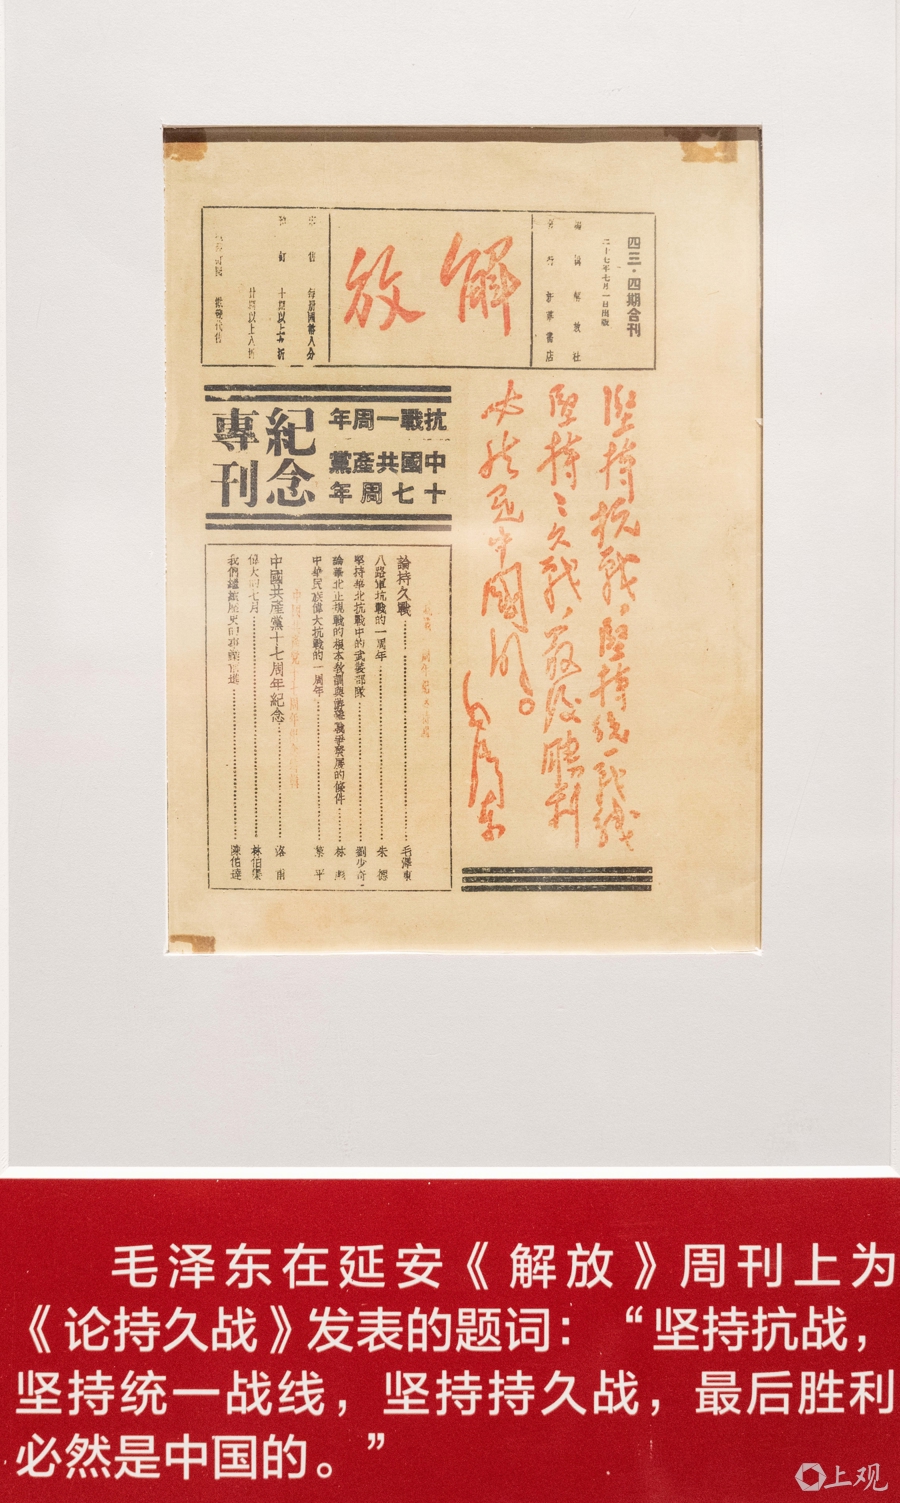 四三·四期合刊
二十七年七月一日出版
編輯 解放社
發行 新華書店
解放
零售 每册國幣八分
預訂 十期以上六折
廿期以上八折
堅持抗戰，堅持統一戰線
堅持持久戰，最後勝利
必然是中國的。
毛澤東
抗戰一周年
中國共產黨
十七周年
紀念
專刊
論持久戰 毛澤東
八路軍抗戰的一周年 朱德
堅持華北抗戰中的武裝部隊 劉少奇
論華北正規戰的根本教訓與游擊戰爭發展的條件 林彪
中華民族偉大抗戰的一周年
中國共產黨十七周年紀念 洛甫
偉大的七月 林伯渠
陳伯達
毛泽东在延安《解放》周刊上为
《论持久战》发表的题词：“坚持抗战，
坚持统一战线，坚持持久战，最后胜利
必然是中国的。”
上观